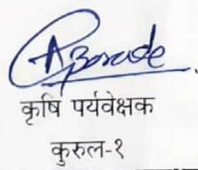 कृषि पर्यवेक्षक
कुरुल-१